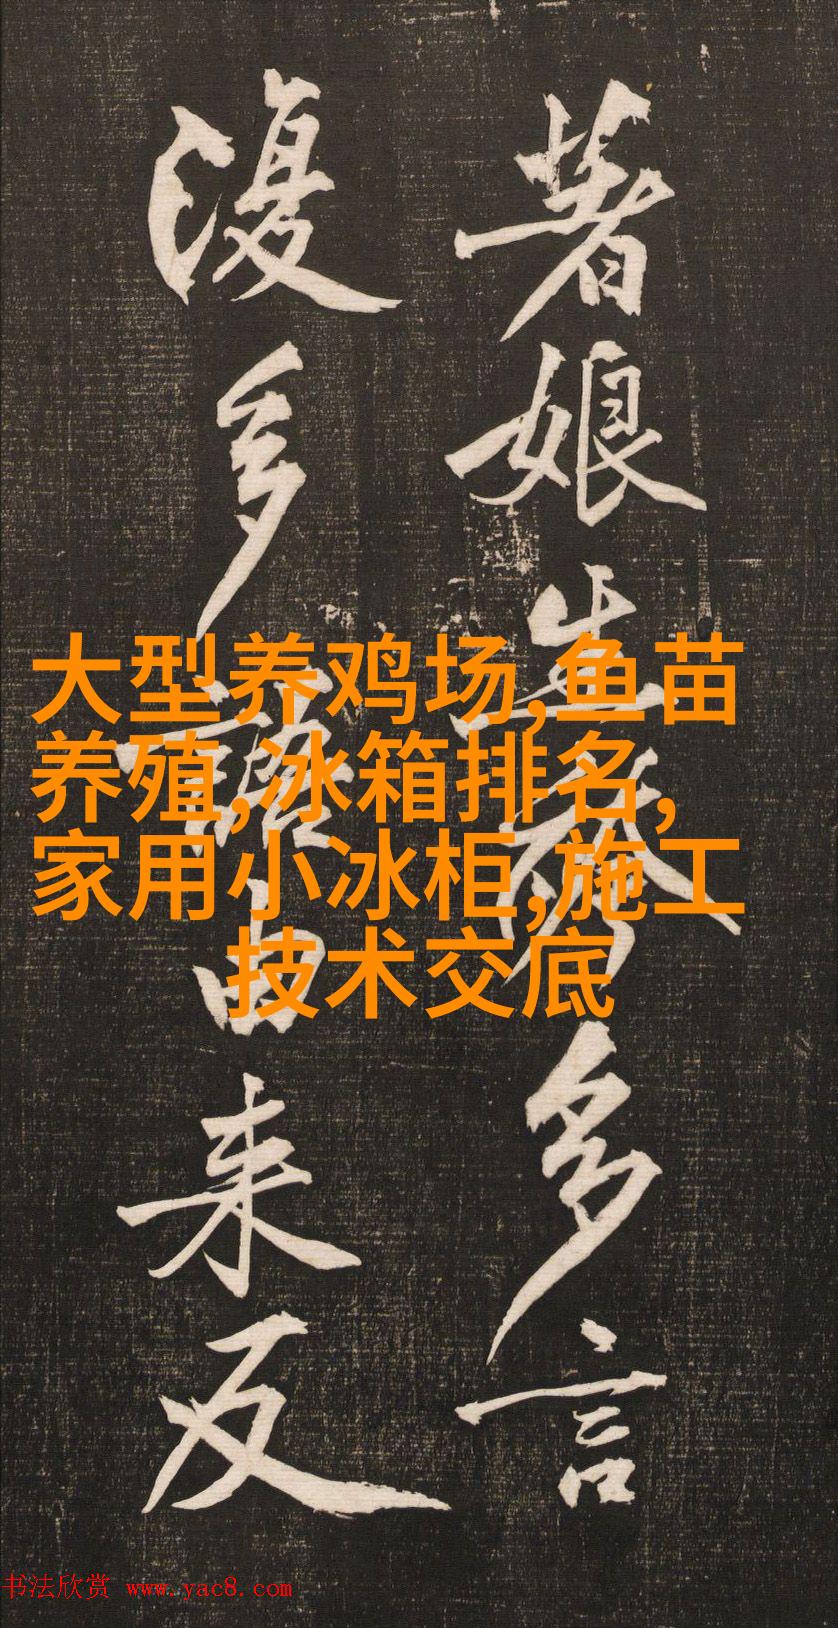 著娘多言
多語由来反
大型养鸡场,鱼苗
养殖,冰箱排名,
家用小冰柜,施工
技术交底
书法欣赏 www.yac8.com